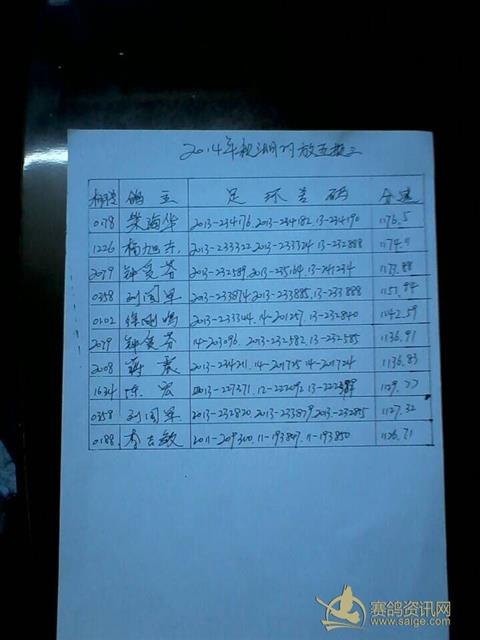 2014年秋 放五投三
棚号 鸽主 足环号码 分速
0178 柴海华 2013-234176. 2013-234182. 13-234190 1176.5
1226 2013-233322 2013-233324 13-232888 1174.11
2079 钟良芬 2013-232589. 2013-235164 13-241234 1173.88
0358 刘国军 2013-233874 2013-233885. 13-233888 1157.94
0102 徐刚鸣 2013-233344. 14-201257. 13-232840 1142.59
2079 钟良芬 14-203096. 2013-232582. 13-232585 1136.91
2008 蒋 2013-234211. 14-201725 14-201724 1136.83
1634 陈宏 2013-227271. 12-222092 1129.77
0358 刘国军 2013-232820 2013-233879 2013-232885 1127.32
0188 李吉敏 2011-209300, 11-193807. 11-193850 1126.71
赛鸽资讯网
www.saige.com